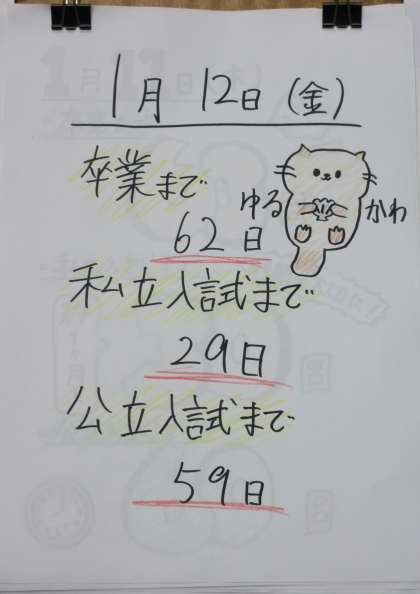 1月12日(金)
卒業まで
ゆる かわ
62日
私立入試まで
29日
公立入試まで
59日